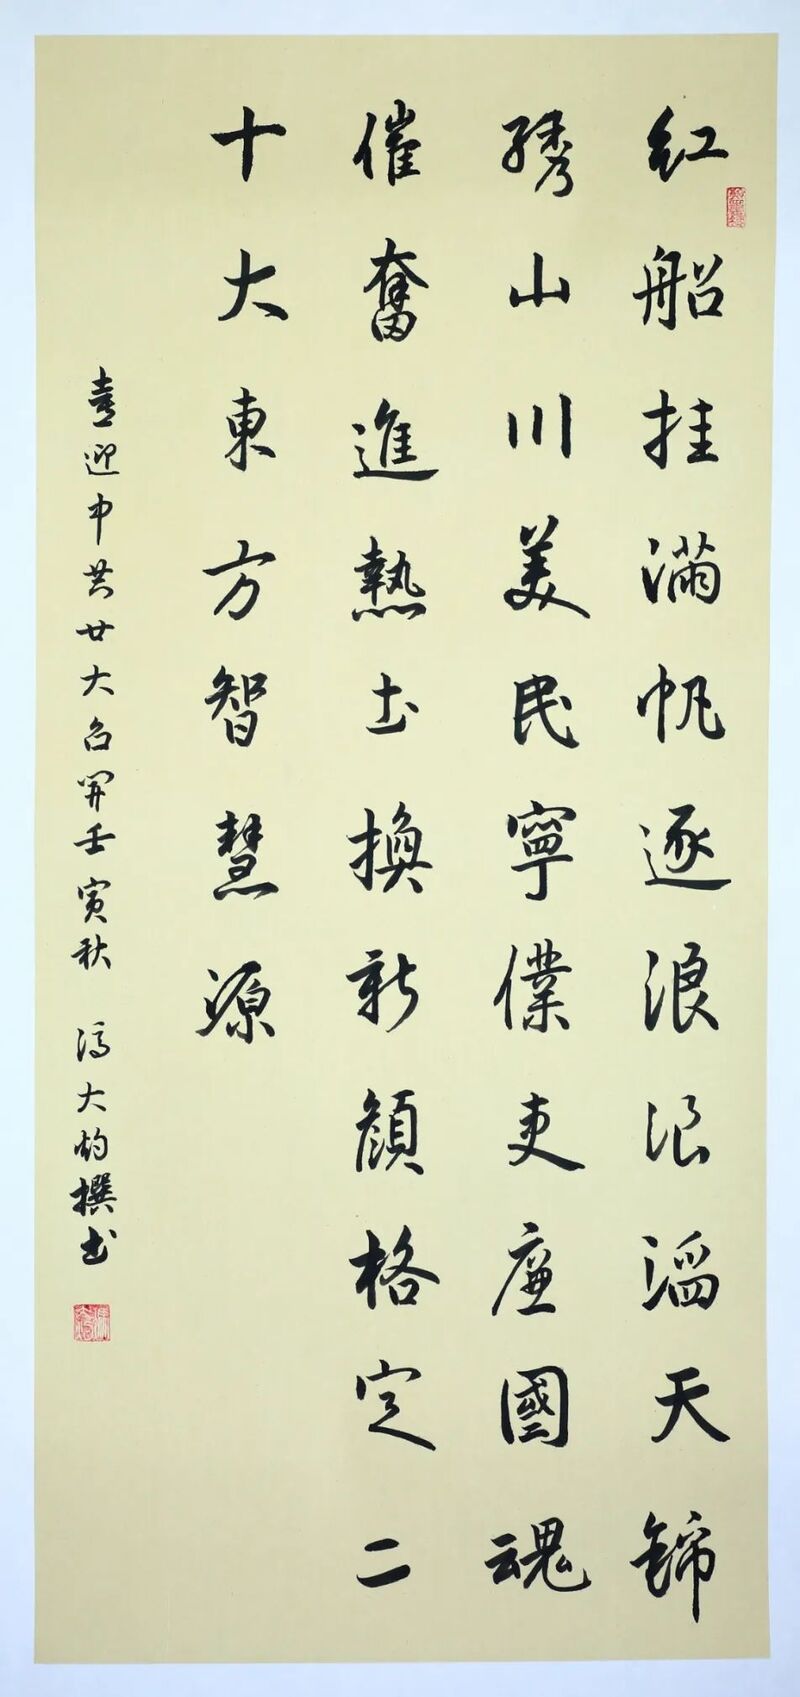 紅船挂滿帆逐浪浪滔天錦
綉山川美民寧僕吏廉國魂
催奮進熱土換新顏格定二
十大東方智慧源
喜迎中共廿大召開壬寅秋 馮大灼撰书